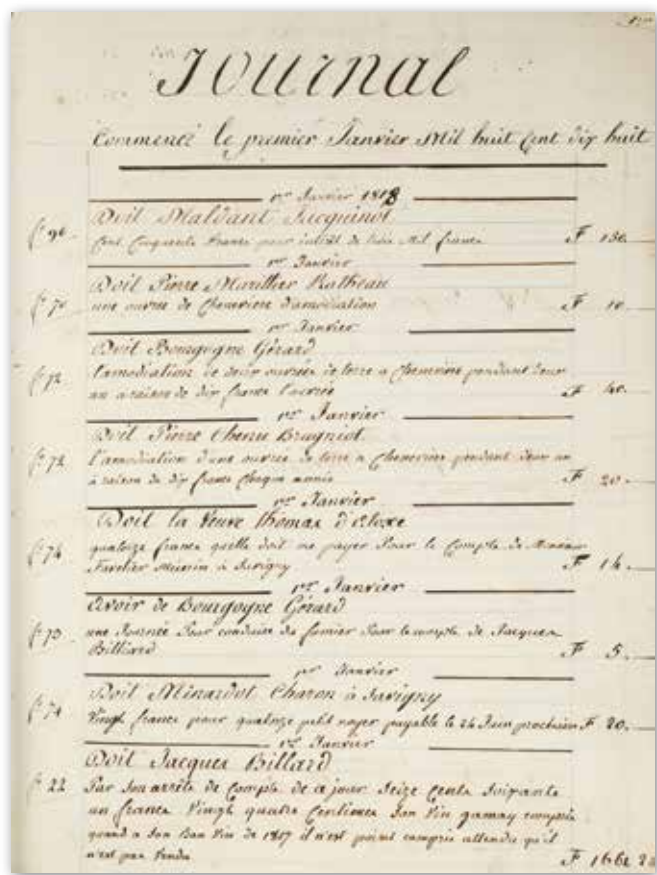 Journal
Commencé le premier Janvier Mil huit Cent dix huit
1er Janvier 1818
Doit Maldant Jacquinot
fo 90 Cent Cinquante francs pour intérêt de trois Mil francs F 150.
1er Janvier
Doit Pierre Mautier Ratheau
fo 70 une ouvrée de Chenevière d'amodiation F 10.
1er Janvier
Doit Bourgogne Gérard
fo 72 l'amodiation de deux ouvrées de terre a Chenevière pendant deux
an a raison de dix francs l'ouvrée F 40.
1er Janvier
Doit Pierre Chenu Brugniot
fo 73 l'amodiation d'une ouvrée de terre a Chenevière pendant deux an
a raison de dix francs Chaque année F 20.
1er Janvier
Doit la Veuve thomas
fo 74 quatorze francs quelle doit me payer Pour le Compte de
à Savigny F 14.
1er Janvier
Avoir de Bourgogne Gérard
fo 73 une Journée Pour conduire du fumier Pour le compte de Jacques
Billiard F 5.
1er Janvier
Doit Minardot Charon à Savigny
fo 74 Vingt francs pour quatorze petit noyer payable le 24 Juin prochain F 20.
1er Janvier
Doit Jacques Billard
fo 22 Par Son arrêté de Compte de ce jour Seize Cents Soixante
un francs Vingt quatre Centimes Son Vin gamay compris
quand a Son Bon Vin de 1817 il n'est point compris attendu qu'il
n'est pas Vendu F 1661 24